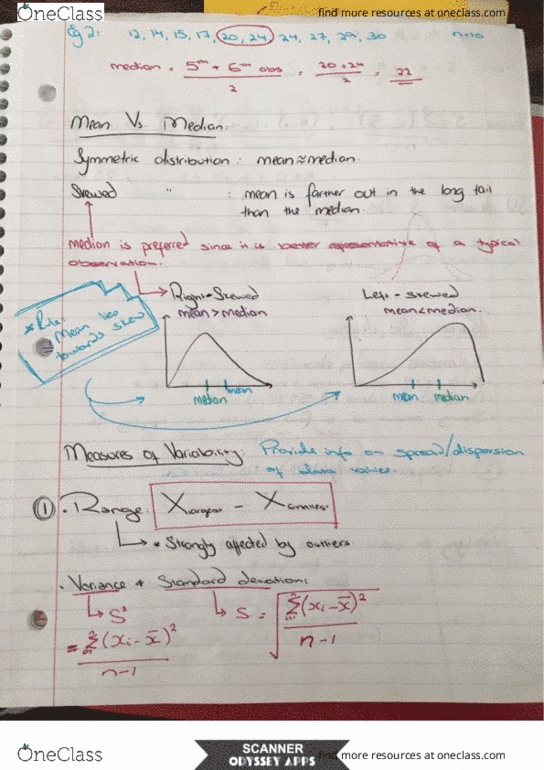 OneClass
find more resources at oneclass.com
Eg 2: 12, 14, 15, 17, 20, 24, 24, 27, 29, 30 n=10
median = 5th + 6th obs / 2 = 20+24 / 2 = 22
Mean Vs Median.
Symmetric distribution: mean≈median.
Skewed " : mean is farther out in the long tail
than the median.
median is prefered since it is better representative of a typical
observation.
Right-Skewed
mean>median
Left-skewed
mean<median.
* Rule:
Mean lies
towards skew
median
mean
mean
median
Measures of Variability: Provide info on spread/dispersion
of data values.
① . Range: Xlargest - Xsmallest
* Strongly affected by outliers.
. Variance & Standard deviation:
S² S = √ Σ(xi - x̄)² / n-1
= Σ(xi - x̄)² / n-1
OneClass
SCANNER
ODYSSEY APPS
find more resources at oneclass.com